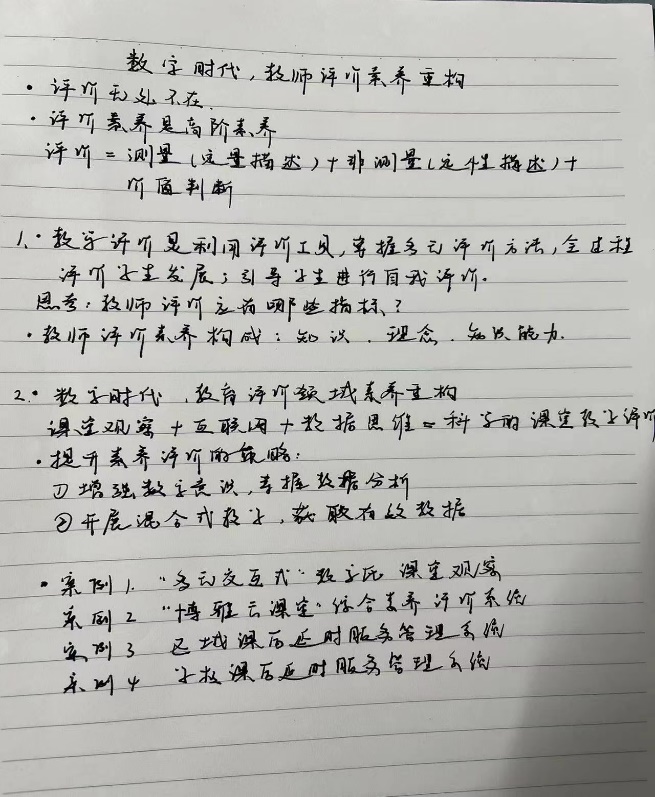 数字时代，教师评价素养重构
· 评价无处不在.
· 评价素养是高阶素养
评价 = 测量（定量描述）+ 非测量（定性描述）+
价值判断
1、· 数字评价是利用评价工具，掌握多元评价方法，全过程
评价学生发展；引导学生进行自我评价.
思考：教师评价应有哪些指标？
· 教师评价素养构成：知识、理念、能力.
2.· 数字时代，教育评价领域素养重构
课堂观察 + 互联网 + 数据思维 = 科学的课堂教学评价
· 提升素养评价的策略：
① 增强数字意识，掌握数据分析
② 开展混合式教学，获取有效数据
· 案例1. “多元交互式”数字化 课堂观察
案例2 “博雅云课堂”综合素养评价系统
案例3 区域课后延时服务管理系统
案例4 学校课后延时服务管理系统